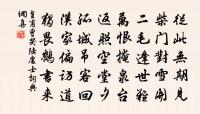 從此無期見
柴門對雪開
二毛逢世難
萬恨掩泉臺
返照空堂夕
孤城吊客回
漢家偏訪道
猶畏鶴書來
皇甫曾哭陸處士詞典
網喜